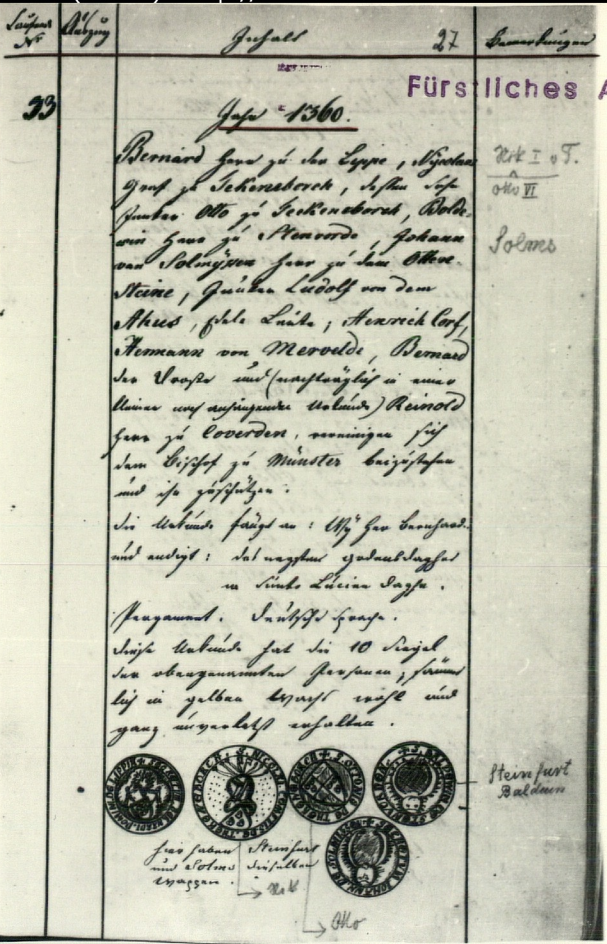 Laufende Nr. Auszug Inhalt 27 Bemerkungen
Fürstliches A
33
Jahr 1360.
Bernard Herr zu der Lippe, Nycolaus
Graf zu Tekeneborch, dessen Sohn
Junker Otto zu Teckeneborch, Bolde-
win Herr zu Stenvorde, Johann
van Solmyssen Herr zu dem Ottene-
steine, Junker Ludolf von dem
Ahus, Edele Leute; Henrich Corf,
Hermann von Mervelde, Bernard
der Droste und (nachträglich in einer
kleinen noch anhangenden Urkunde) Reinold
Herr zu Coverden, vereinigen sich
dem Bischof zu Münster beizustehen
und ihn zu schützen.
Die Urkunde fängt an: Wy her Bernhard
und endigt: des negsten godensdaghes
na sunte Lucien daghe.
Pergament. Deutsche Sprache.
Diese Urkunde hat die 10 Siegel
der obengenannten Personen, sämmt-
lich in gelben Wachs recht und
ganz unverletzt erhalten.
Nik I v T.
Otto VI
Solms
Steinfurt
Balduin
hier haben Steinfurt
und Solms dieselben
Wappen.
Nik
Otto